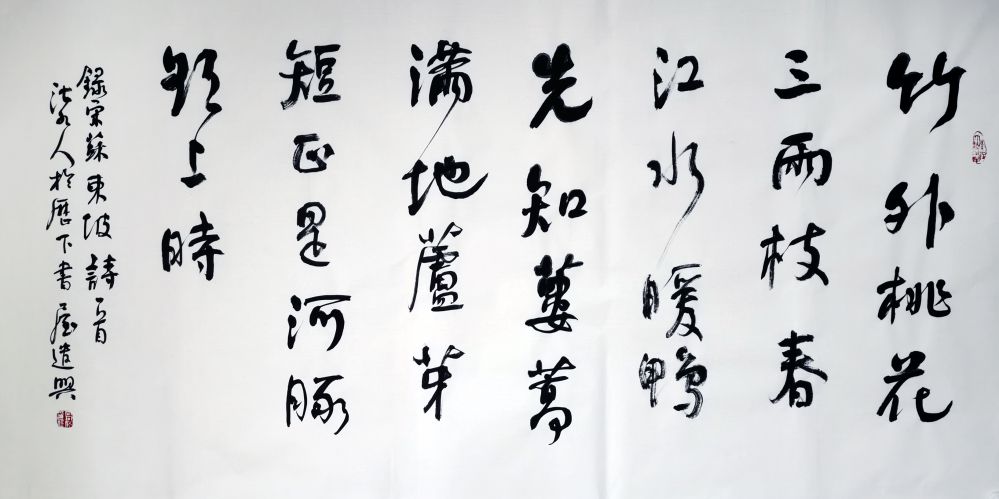 竹外桃花
三兩枝春
江水暖鴨
先知蔞蒿
滿地蘆芽
短正是河豚
欲上時
錄宋蘇東坡詩一首
人於歷下書屋遣興